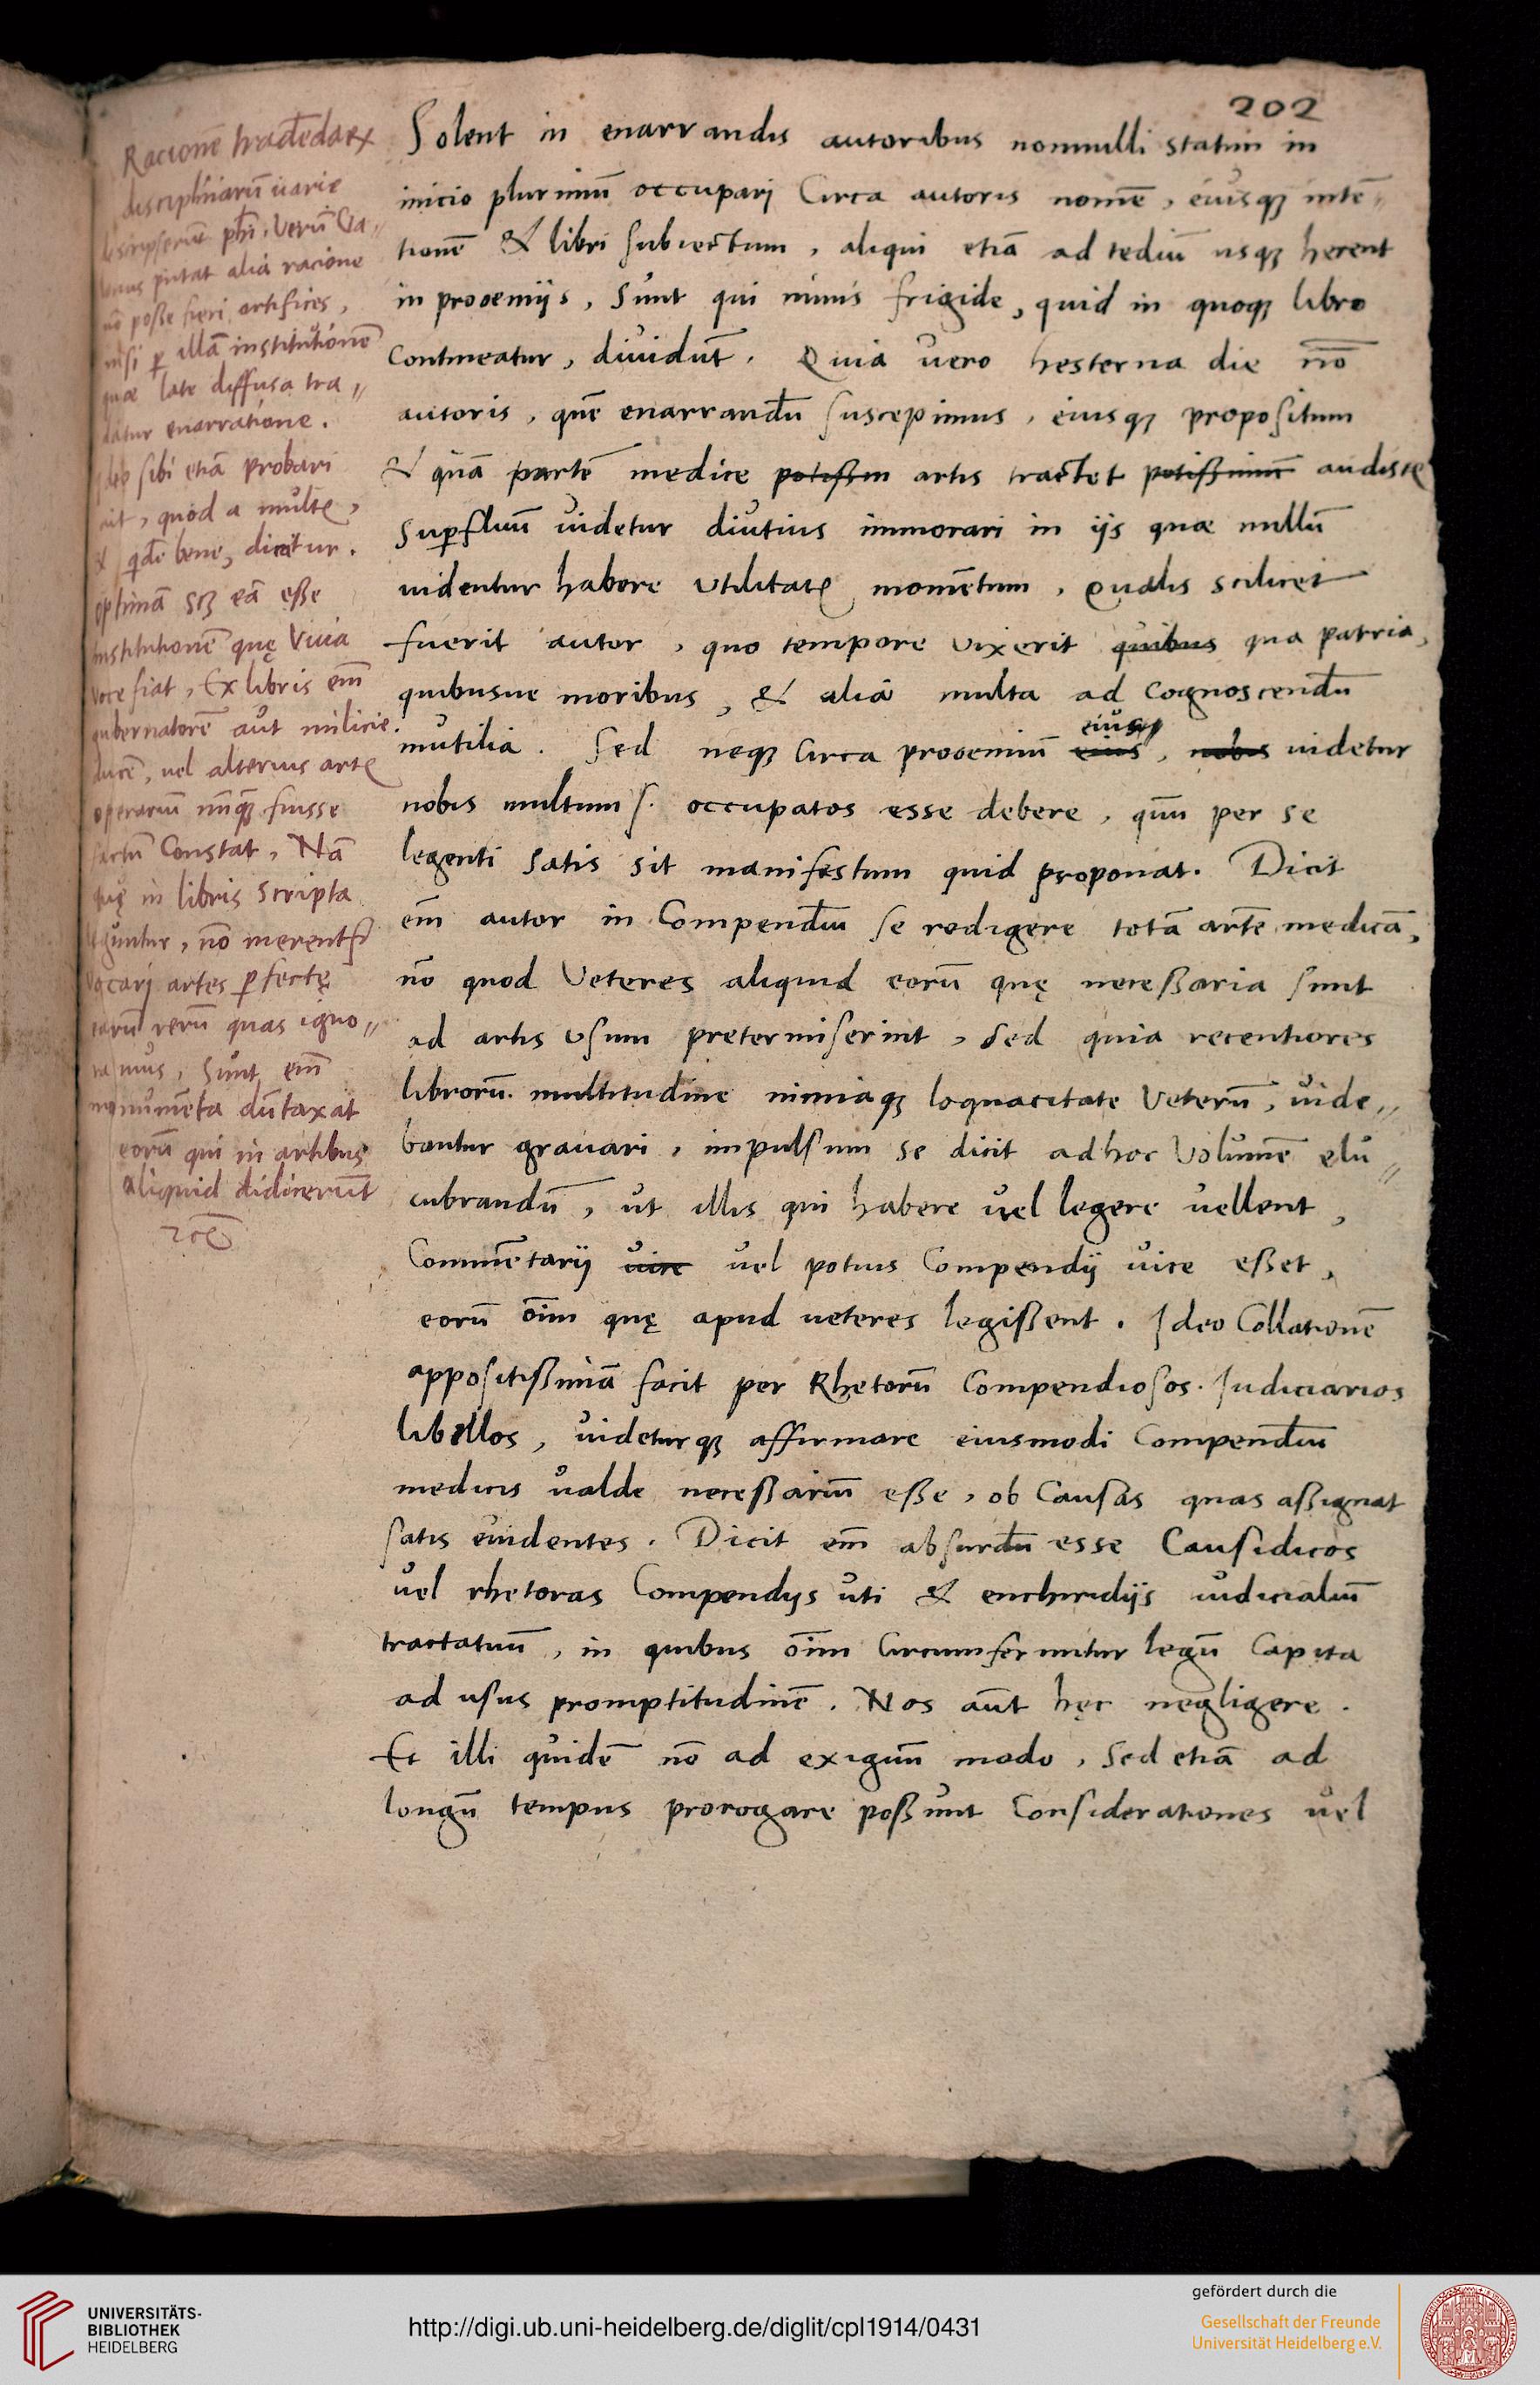 202
Solent in enarrandis autoribus nonnulli statim in
inicio plurimū occupari Circa autoris nomē, eiusqꝫ intē〃
tionē & libri subiectum, aliqui etiā ad tediū usqꝫ herent
in prooemijs, Sunt qui nimis frigide, quid in quoqꝫ libro
Contineatur, diuidūt. Quia uero hesterna die nō
autoris, quē enarrandū suscepimus, eiusqꝫ propositum
& quā partē medice potissim artis tractet potissimum audistꝭ
Suꝑfluū uidetur diutius immorari in ijs quæ nullū
uidentur habere utilitatꝭ momētum, Qualis scilicet
fuerit autor, quo tempore vixerit quibus qua patria,
quibusue moribus, & alia multa ad Cognoscendū
inutilia. Sed neqꝫ Circa prooemiū eius eius, nobis uidetur
nobis multum s. occupatos esse debere, quū per se
legenti satis sit manifestum quid proponat. Dicit
em̄ autor in Compendiū se redigere totā artē medicā,
nō quod Veteres aliquid eorū quę necessaria sunt
ad artis usum pretermiserint, Sed quia recentiores
librorū multitudine nimiaqꝫ loquacitate Veterū, uide〃
bantur grauari, impulsum se dicit ad hoc Volumē elu〃
cubrandū, ut illis qui habere uel legere uellent,
Commētarij uice uel potius Compendij uice esset,
eorū oīm quę apud ueteres legissent. Ideo Collationē
appositissimā facit per Rhetorū Compendiosos Iudiciarios
libellos, uideturqꝫ affirmare eiusmodi Compendiū
medicis ualde necessariū esse, ob Causas quas assignat
satis euidentes. Dicit em̄ absurdū esse Causidicos
uel rhetoras Compendijs uti & enchiridijs iudicialiū
tractatuū, in quibus oīm Circumferuntur legū Capita
ad usus promptitudinē. Nos aūt hęc negligere.
Et illi quidē nō ad exiguū modo, Sed etiā ad
longū tempus prorogare possunt Considerationes uel
Racionē tradēdarꝝ
disciplinarū uarie
phi, Verū Ga〃
putat alia racione
nō posse fieri artifices,
nisi ꝑ illā institutionē
quæ late diffusa tra〃
datur enarratione.
sibi etiā probari
ait, quod a multꝭ,
& qdē bene, dicitur.
optimā scꝫ eā esse
institutionē quę Viua
voce fiat, Ex libris em̄
gubernatorē aut milicie
ducē, uel alterius artꝭ
operariū nunqꝫ fuisse
factū Constat, Nā
quę in libris scripta
leguntur, nō merentur
vocari artes ꝑfectę
earū rerū quas igno〃
ramus, Sunt em̄
monumēta dūtaxat
eorū qui in artibus
aliquid didicerūt
UNIVERSITÄTS-
BIBLIOTHEK
HEIDELBERG
http://digi.ub.uni-heidelberg.de/diglit/cpl1914/0431
gefördert durch die
Gesellschaft der Freunde
Universität Heidelberg e.V.